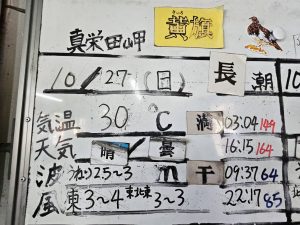 きいろ
真栄田岬 黄旗
10/27(日) 長潮
気温 30℃ 満 03:04 149
天気 晴 曇 16:15 164
波 うねり2.5~3m 干 09:37 64
風 東3~4 東北東3~3 22:17 85